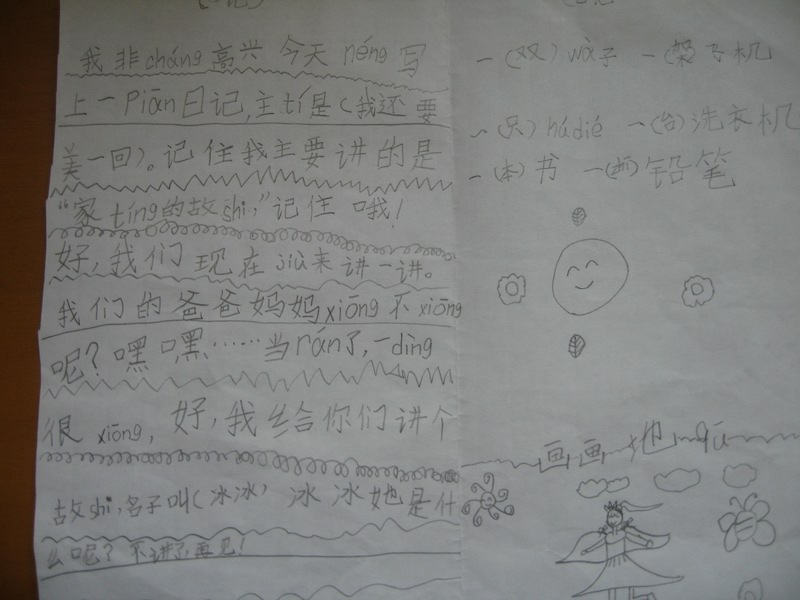 我非cháng高兴今天néng写
上一Piān日记,主tí是(我还要
美一回)。记住我主要讲的是
“家tíng的故shi,”记住哦!
好,我们现在jiù来讲一讲。
我们的爸爸妈妈xiōng不xiōng
呢?嘿嘿……当rán了,一dìng
很xiōng,好,我给你们讲个
故shi,名子叫(冰冰)冰冰她是什
么呢?不讲了再见!
一(双)wà子 一(架)飞机
一(只)húdié 一(台)洗衣机
一(本)书 一()铅笔
画画地qū